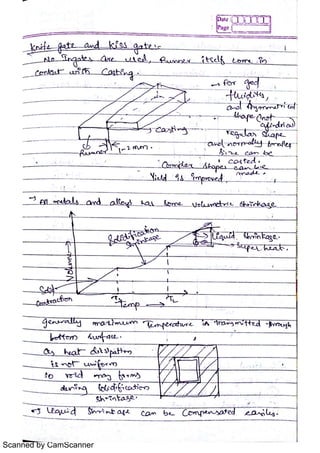 Date
Page
Knife gate and kiss gate :-
No Ingates are used, Runner itself come in
contact with casting.
→ For good
fluidity,
and Asymmetrical
shape (not
cylindrical)
regular shape
and normally smaller
size can be
casted.
casting
Runner
1-2 mm.
Complex shapes can be
made.
Yield is improved.
→ All metals and alloys has some volumetric shrinkage
Solidification
shrinkage
Liquid shrinkage.
Super heat.
Volume →
Solid
contraction
Temp →
TL
generally maximum Temperature is transmitted through
bottom surface.
as heat dissipation
is not uniform
so void may forms
during solidification
shrinkage.
→ Liquid Shrinkage can be Compensated easily.
Scanned by CamScanner